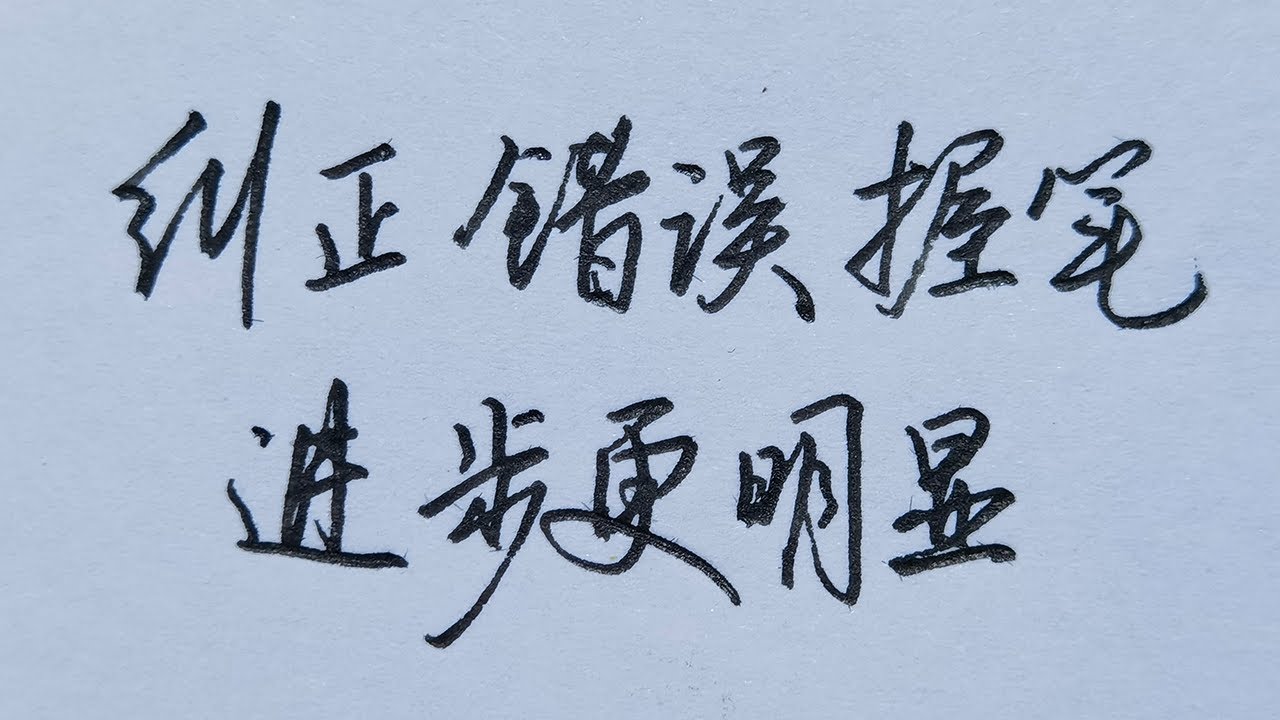 纠正错误握笔
进步更明显